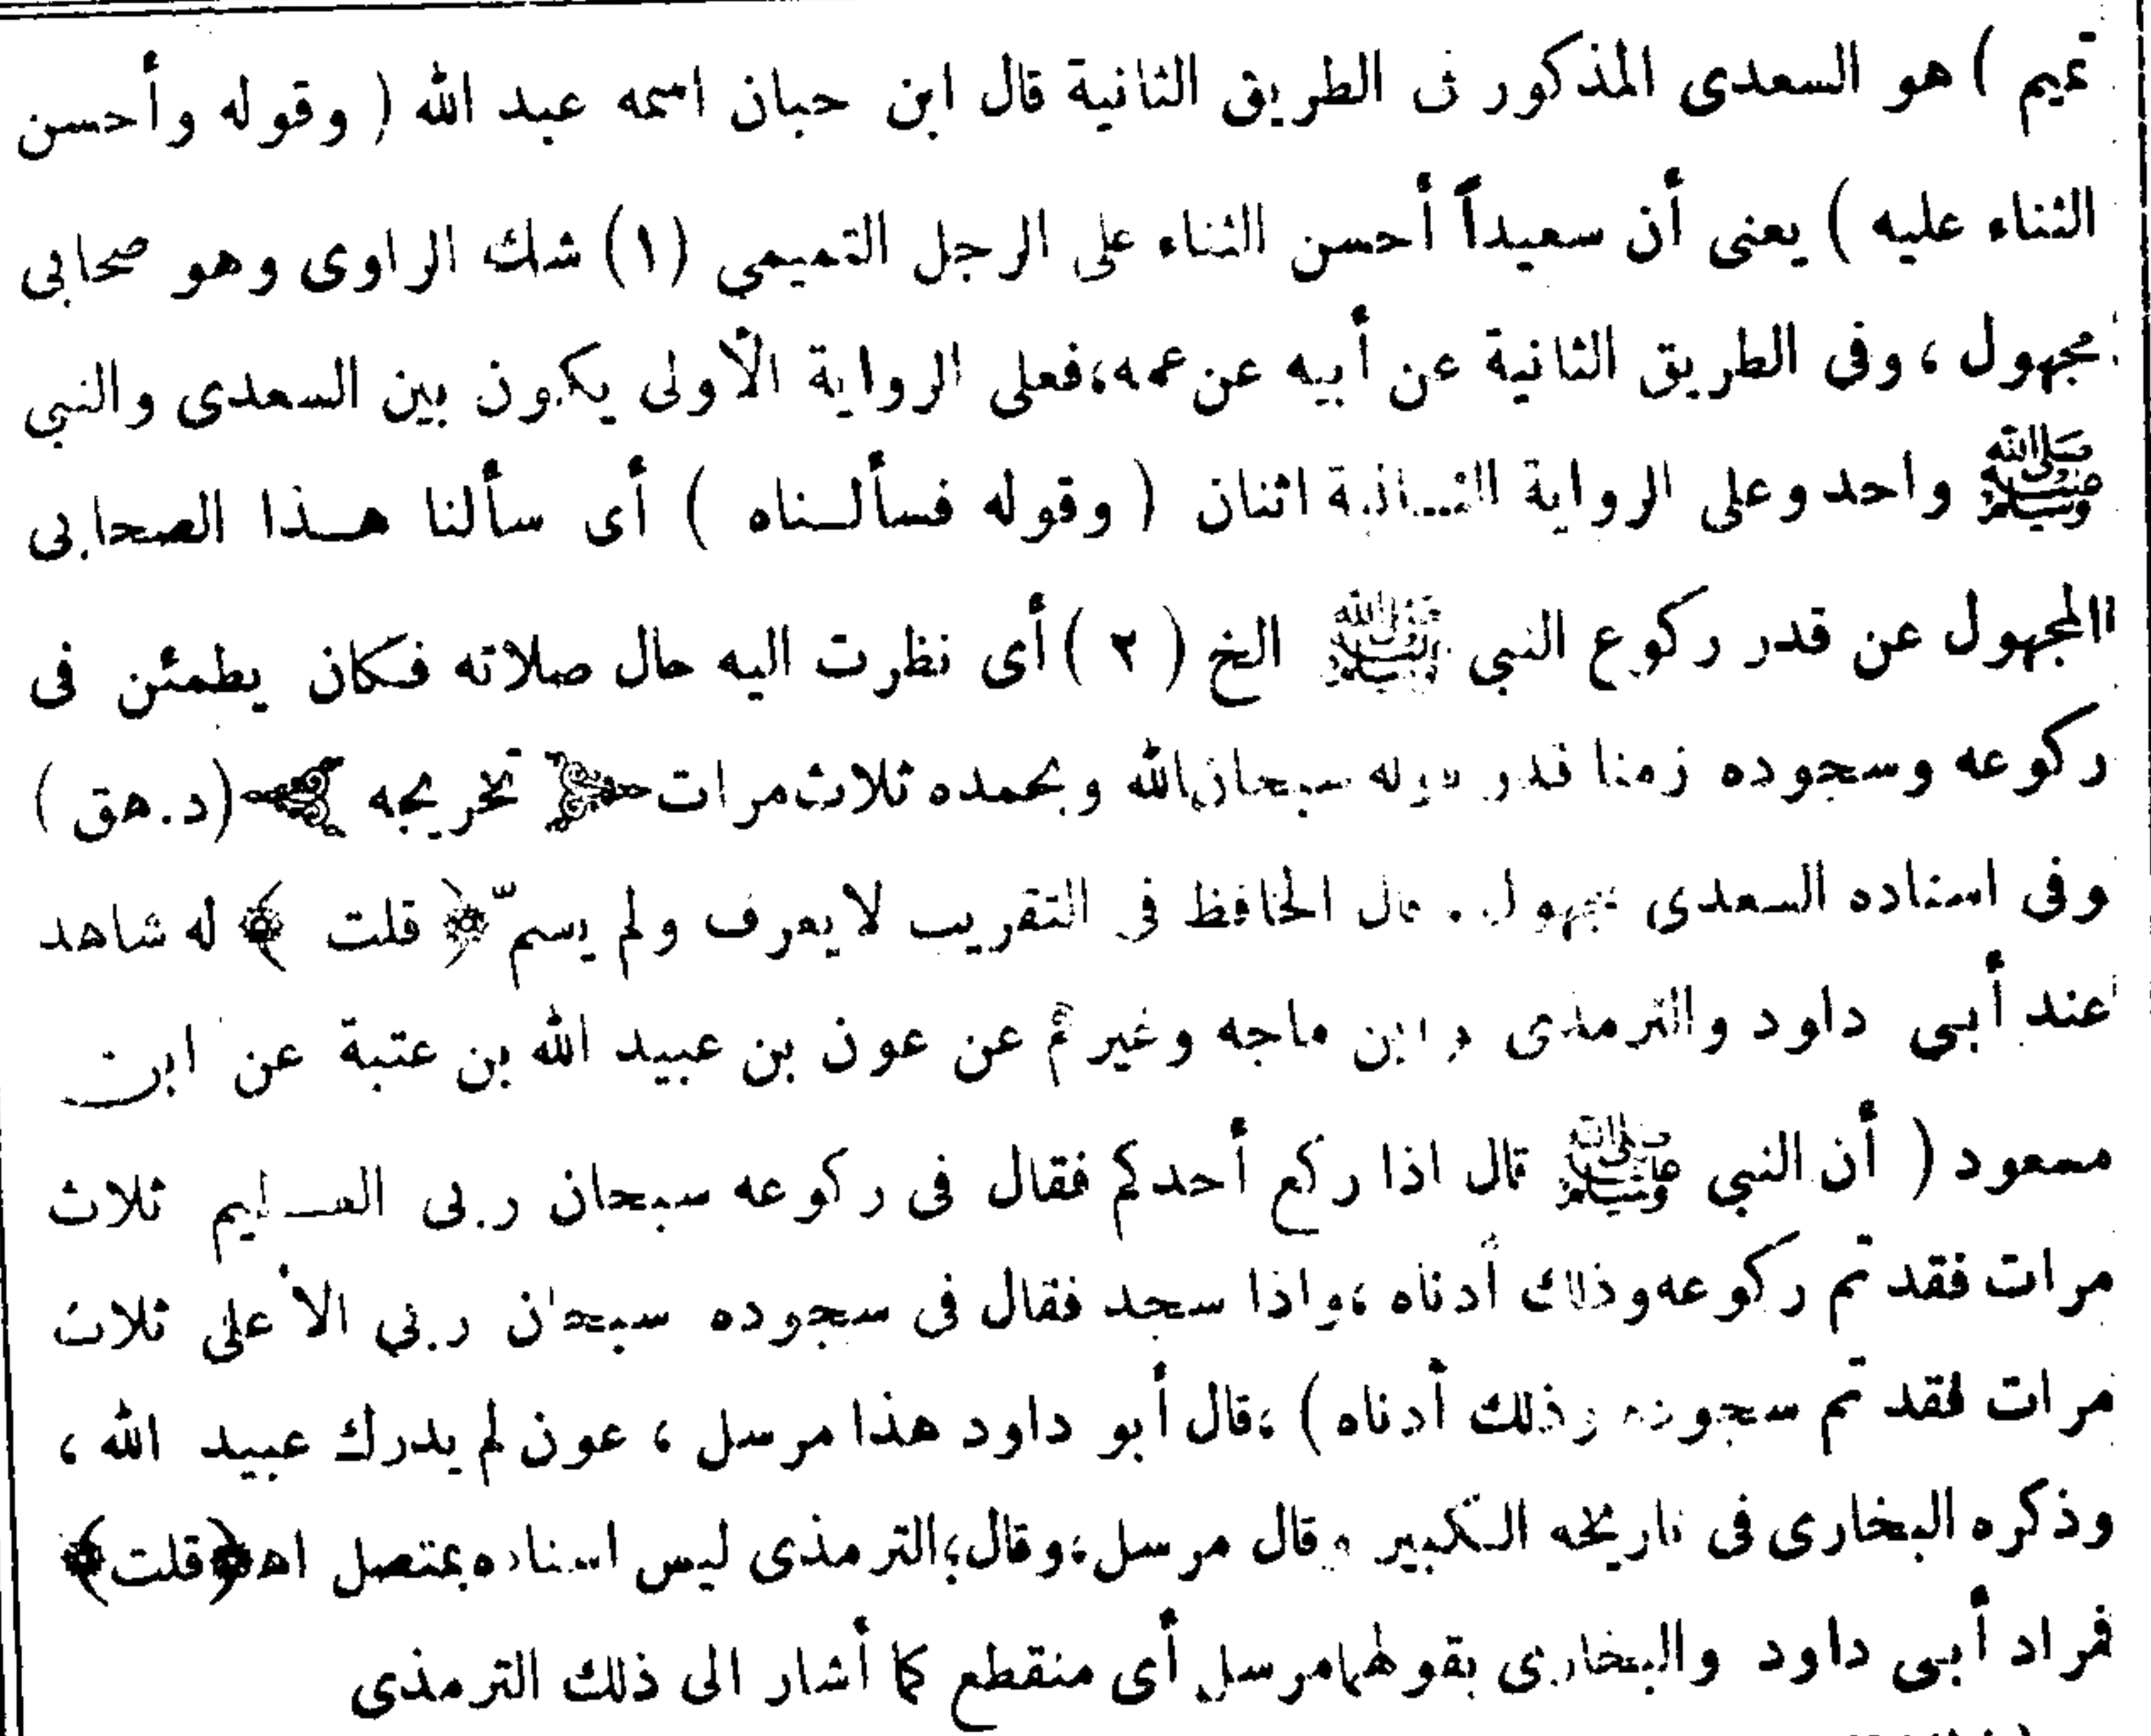 تميم ) هو السعدى المذكور فى الطريق الثانية قال ابن حبان اسمه عبد الله ( وقوله وأحسن
الثناء عليه ) يعنى أن سعيداً أحسن الثناء على الرجل التميمى (١) شك الراوى وهو صحابى
مجهول ، وفى الطريق الثانية عن أبيه عن عمه ، فعلى الرواية الأولى يكون بين السعدى والنبى
ﷺ واحد وعلى الرواية الثانية اثنان ( وقوله فسألناه ) أى سألنا هذا الصحابى
المجهول عن قدر ركوع النبي ﷺ الخ (٢) أى نظرت اليه حال صلاته فكان يطمئن فى
ركوعه وسجوده زمنا قدر قوله سبحان الله وبحمده ثلاث مرات تخريجه (د. هق)
وفى اسناده السعدى مجهول. قال الحافظ فى التقريب لايعرف ولم يسمّ ﴿ قلت ﴾ له شاهد
عند أبى داود والترمذى وابن ماجه وغيرهم عن عون بن عبيد الله بن عتبة عن ابن
مسعود ( أن النبي ﷺ قال اذا ركع أحدكم فقال فى ركوعه سبحان ربى العظيم ثلاث
مرات فقد تم ركوعه وذلك أدناه ، واذا سجد فقال فى سجوده سبحان ربى الأعلى ثلاث
مرات فقد تم سجوده وذلك أدناه ) ، قال أبو داود هذا مرسل ، عون لم يدرك عبيد الله ،
وذكره البخارى فى تاريخه الكبير وقال مرسل ، وقال ، الترمذى ليس اسناده بمتصل اهـ ﴿قلت﴾
فمراد أبى داود والبخارى بقولهما مرسل أى منقطع كما أشار الى ذلك الترمذى